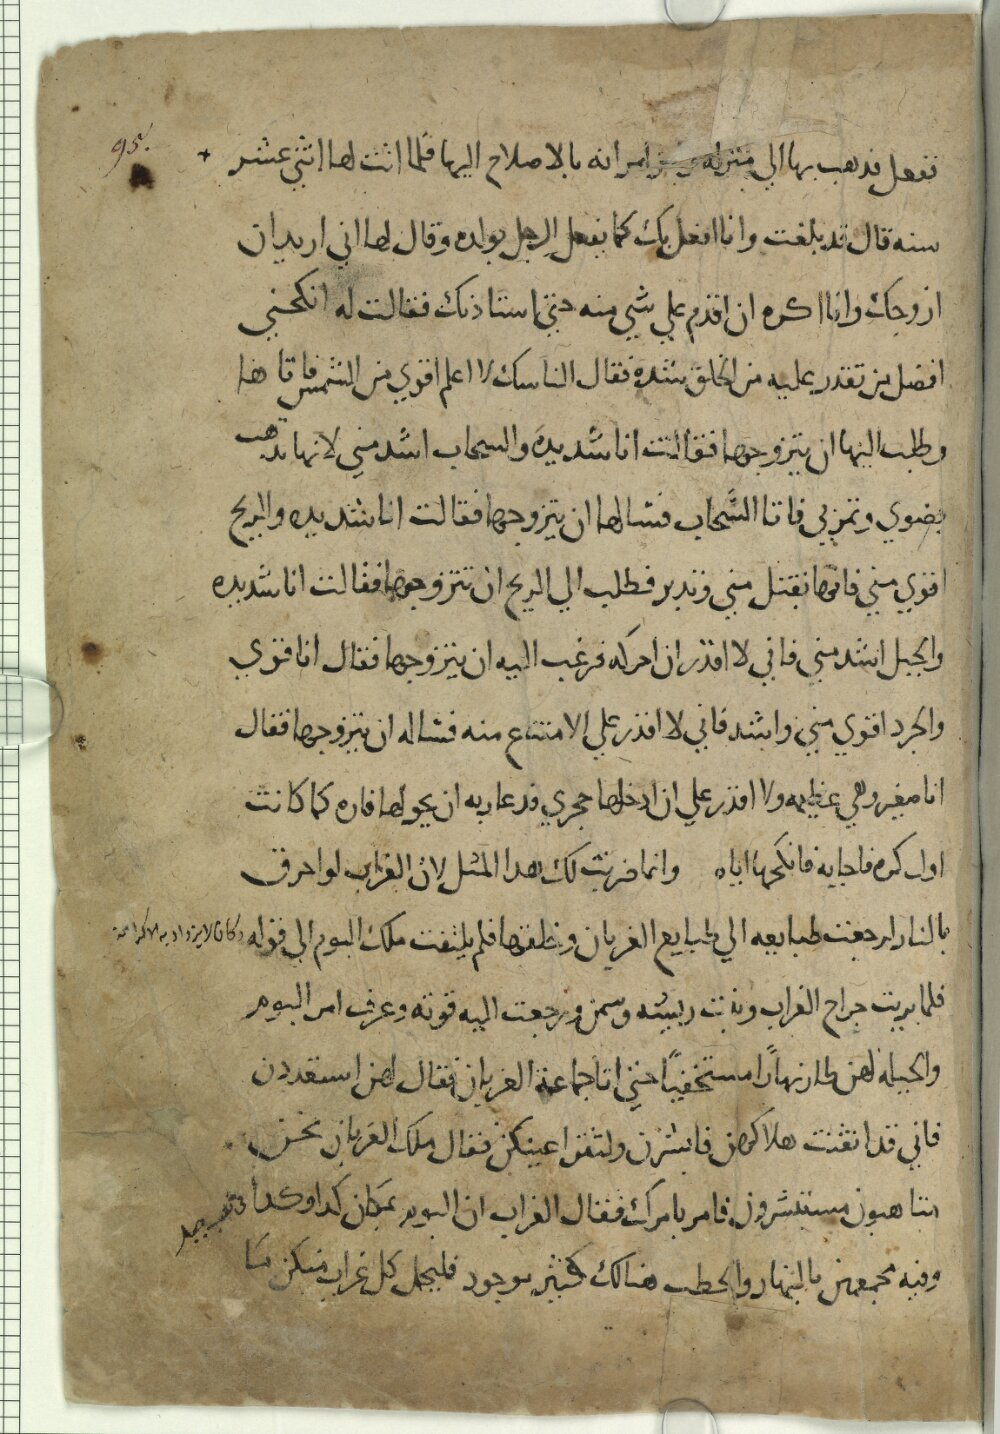 95.
تفعل فذهب بها الي منزله وامر امراته بالاصلاح اليها فلما اتت لها اثني عشر
سنه قال قد بلغت وانا افعل بك كما يفعل الرجل بولده وقال لها اني اريد ان
ازوجك وانا اكره ان اقدم علي شي منه حتي استاذنك فقالت له انكحني
افضل من تقدر عليه من الخلق شده فقال الناسك لا اعلم اقوي من الشمس فاتاها
وطلب اليها ان يتزوجها فقالت انا شديده والسحاب اشد مني لانها تذهب
بضوي وتمر بي فاتا السَّحاب فسالها ان يتزوجها فقالت انا شديده والريح
اقوي مني فانها تقبل بي وتدبر فطلب الي الريح ان تتزوجها فقالت انا شديده
والجبل اشد مني فاني لا اقدر ان احركه فرغب اليه ان يتزوجها فقال انا قوي
والجرد اقوي مني واشد فاني لا اقدر علي الامتناع منه فساله ان يتزوجها فقال
انا صغير وهي عظيمه ولا اقدر علي ان ادخلها حجري فدعا ربه ان يحولها فاره كما كانت
اول كره فاجابه فانكحها اياه وانما ضربت لك هدا المثل لان الغراب لو احرق
بالنار لرجعت طبايعه الي طبايع الغربان وخلقها فلم يلتفت ملك البوم الي قوله وكان لا يزداد به الا كرامة
فلما بريت جراح الغراب ونبت ريشه وسمن ورجعت اليه قوته وعرف امر البوم
والحيله لهن طار نهارًا مستخفيًا حتي اتا جماعة الغربان فقال لهن استعددن
فاني قد اتقنت هلاكهن فابشرن ولتقر اعينكن فقال ملك الغربان نحن
متاهبون مستبشرون فامر بامرك فقال الغراب ان البوم بمكان كدا وكدا في جبل
وفيه مجمعهن بالنهار والحطب هنالك كثير موجود فليحمل كل غراب منكن ما